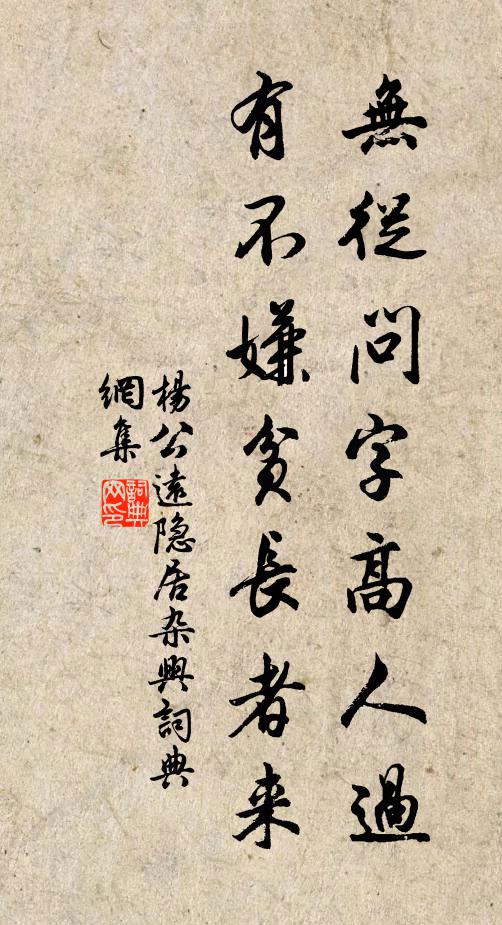 無從問字高人過
有不嫌貧長者来
楊公遠隐居杂興詞典
網集
詞典
网印